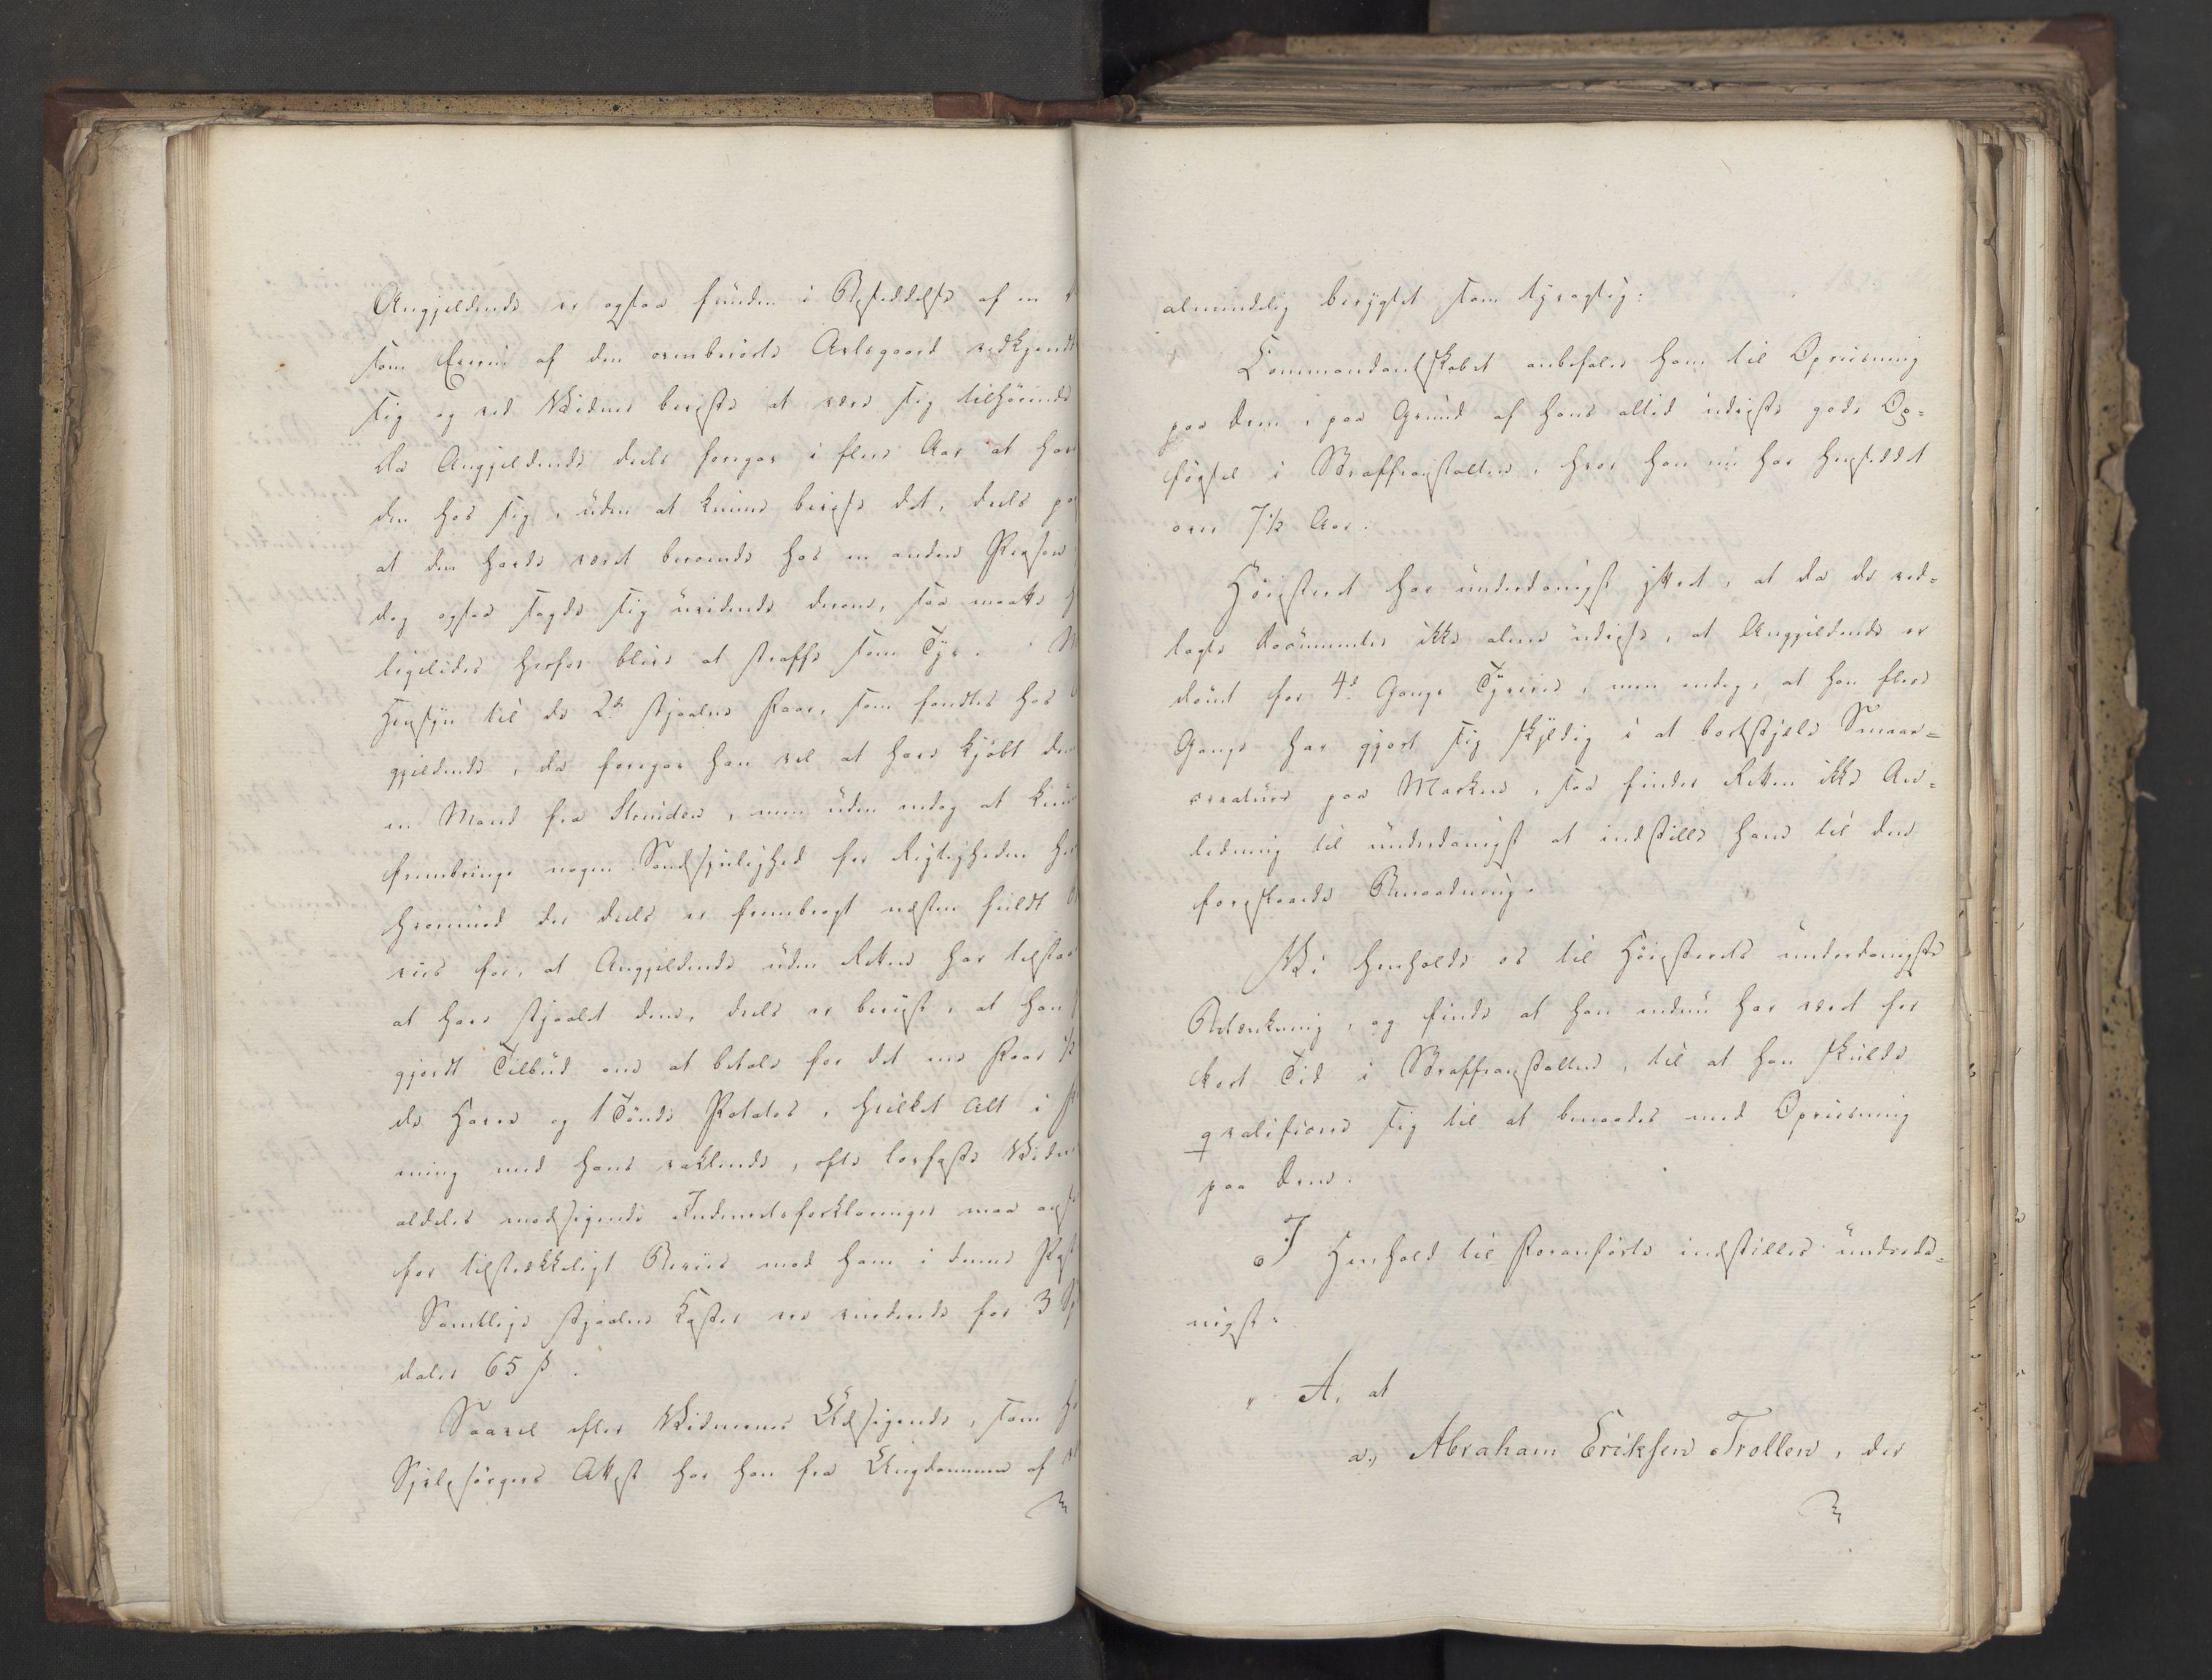 Angjeldende er ogsaa funden i Besiddelse af en
som Eierne af den ommeldte Avlsgaard vedkjendt
sig og ved Vidner beviste at være sig tilhørende
Da Angjeldende deels foregav i flere Aar at hav
den hos sig, uden at kunne bevise det, deels pa
at den havde været beroende hos en anden Person
dog ogsaa sagde sig uvidende derom, saa maatte
ligeledes herfor blive at straffe som Tyv.
Hensyn til de 2de stjaalne Faar, som fandtes hos
gjeldende, da foregav han vel at have kjøbt de
en Mand fra Strinden, men uden endog at kun
frembringe nogen Sandsynlighed for Rigtigheden he
hvorimod der deels er frembragt næsten fuldt
viis for, at Angjeldende uden Retten har tilstaa
at have stjaalet dem, deels er beviist, at han
gjordt Tilbud om at betale for det ene Faar 1/2
de Havre og 1 Tønde Potetes, hvilket Alt i
ning med hans vaklende, ofte lovfaste Vidn
aldeles modsigende Indenretsforklaringer maa ans
for tilstrækkeligt Beviis mod ham i denne Post
Samtlige stjaalne Koster ere vurderede for 3 Sp
daler 65 ß.
Saavel efter Vidnernes Udsigende, som
Sjelesørgers Attest har han fra Ungdommen af
almindelig berygtet som tyvagtig.
Commandantskabet anbefaler ham til Opreisning
paa Æren, paa Grund af hans altid udviste gode Op-
førsel i Straffeanstalten, hvor han nu har hensiddet
over 7 1/2 Aar.
Høiesteret har underdanigst yttret, at da de ved-
lagte Documenter ikke alene udvise, at Angjeldende er
dømt for 4de Gangs Tyverie, men endog, at han flere
Gange har gjort sig skyldig i at bortstjæle Smaa-
creature paa Marken, saa finder Retten ikke An-
ledning til underdanigst at indstille ham til den
foreslaaede Benaadning.
Vi henholde os til Høiesterets underdanigste
Betænkning, og finde at han endnu har været for
kort Tid i Straffeanstalten, til at han skulde
qvalificere sig til at benaades med Opreisning
paa Æren.
I Henhold til Foranførte indstilles underda-
nigst:
A, at
a., Abraham Eriksen Trollen, der